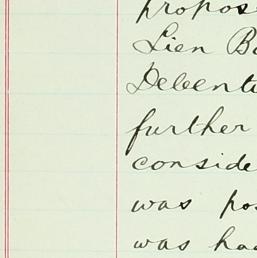 propos
Lien Bo
Debentu
further
conside
was pos
was had